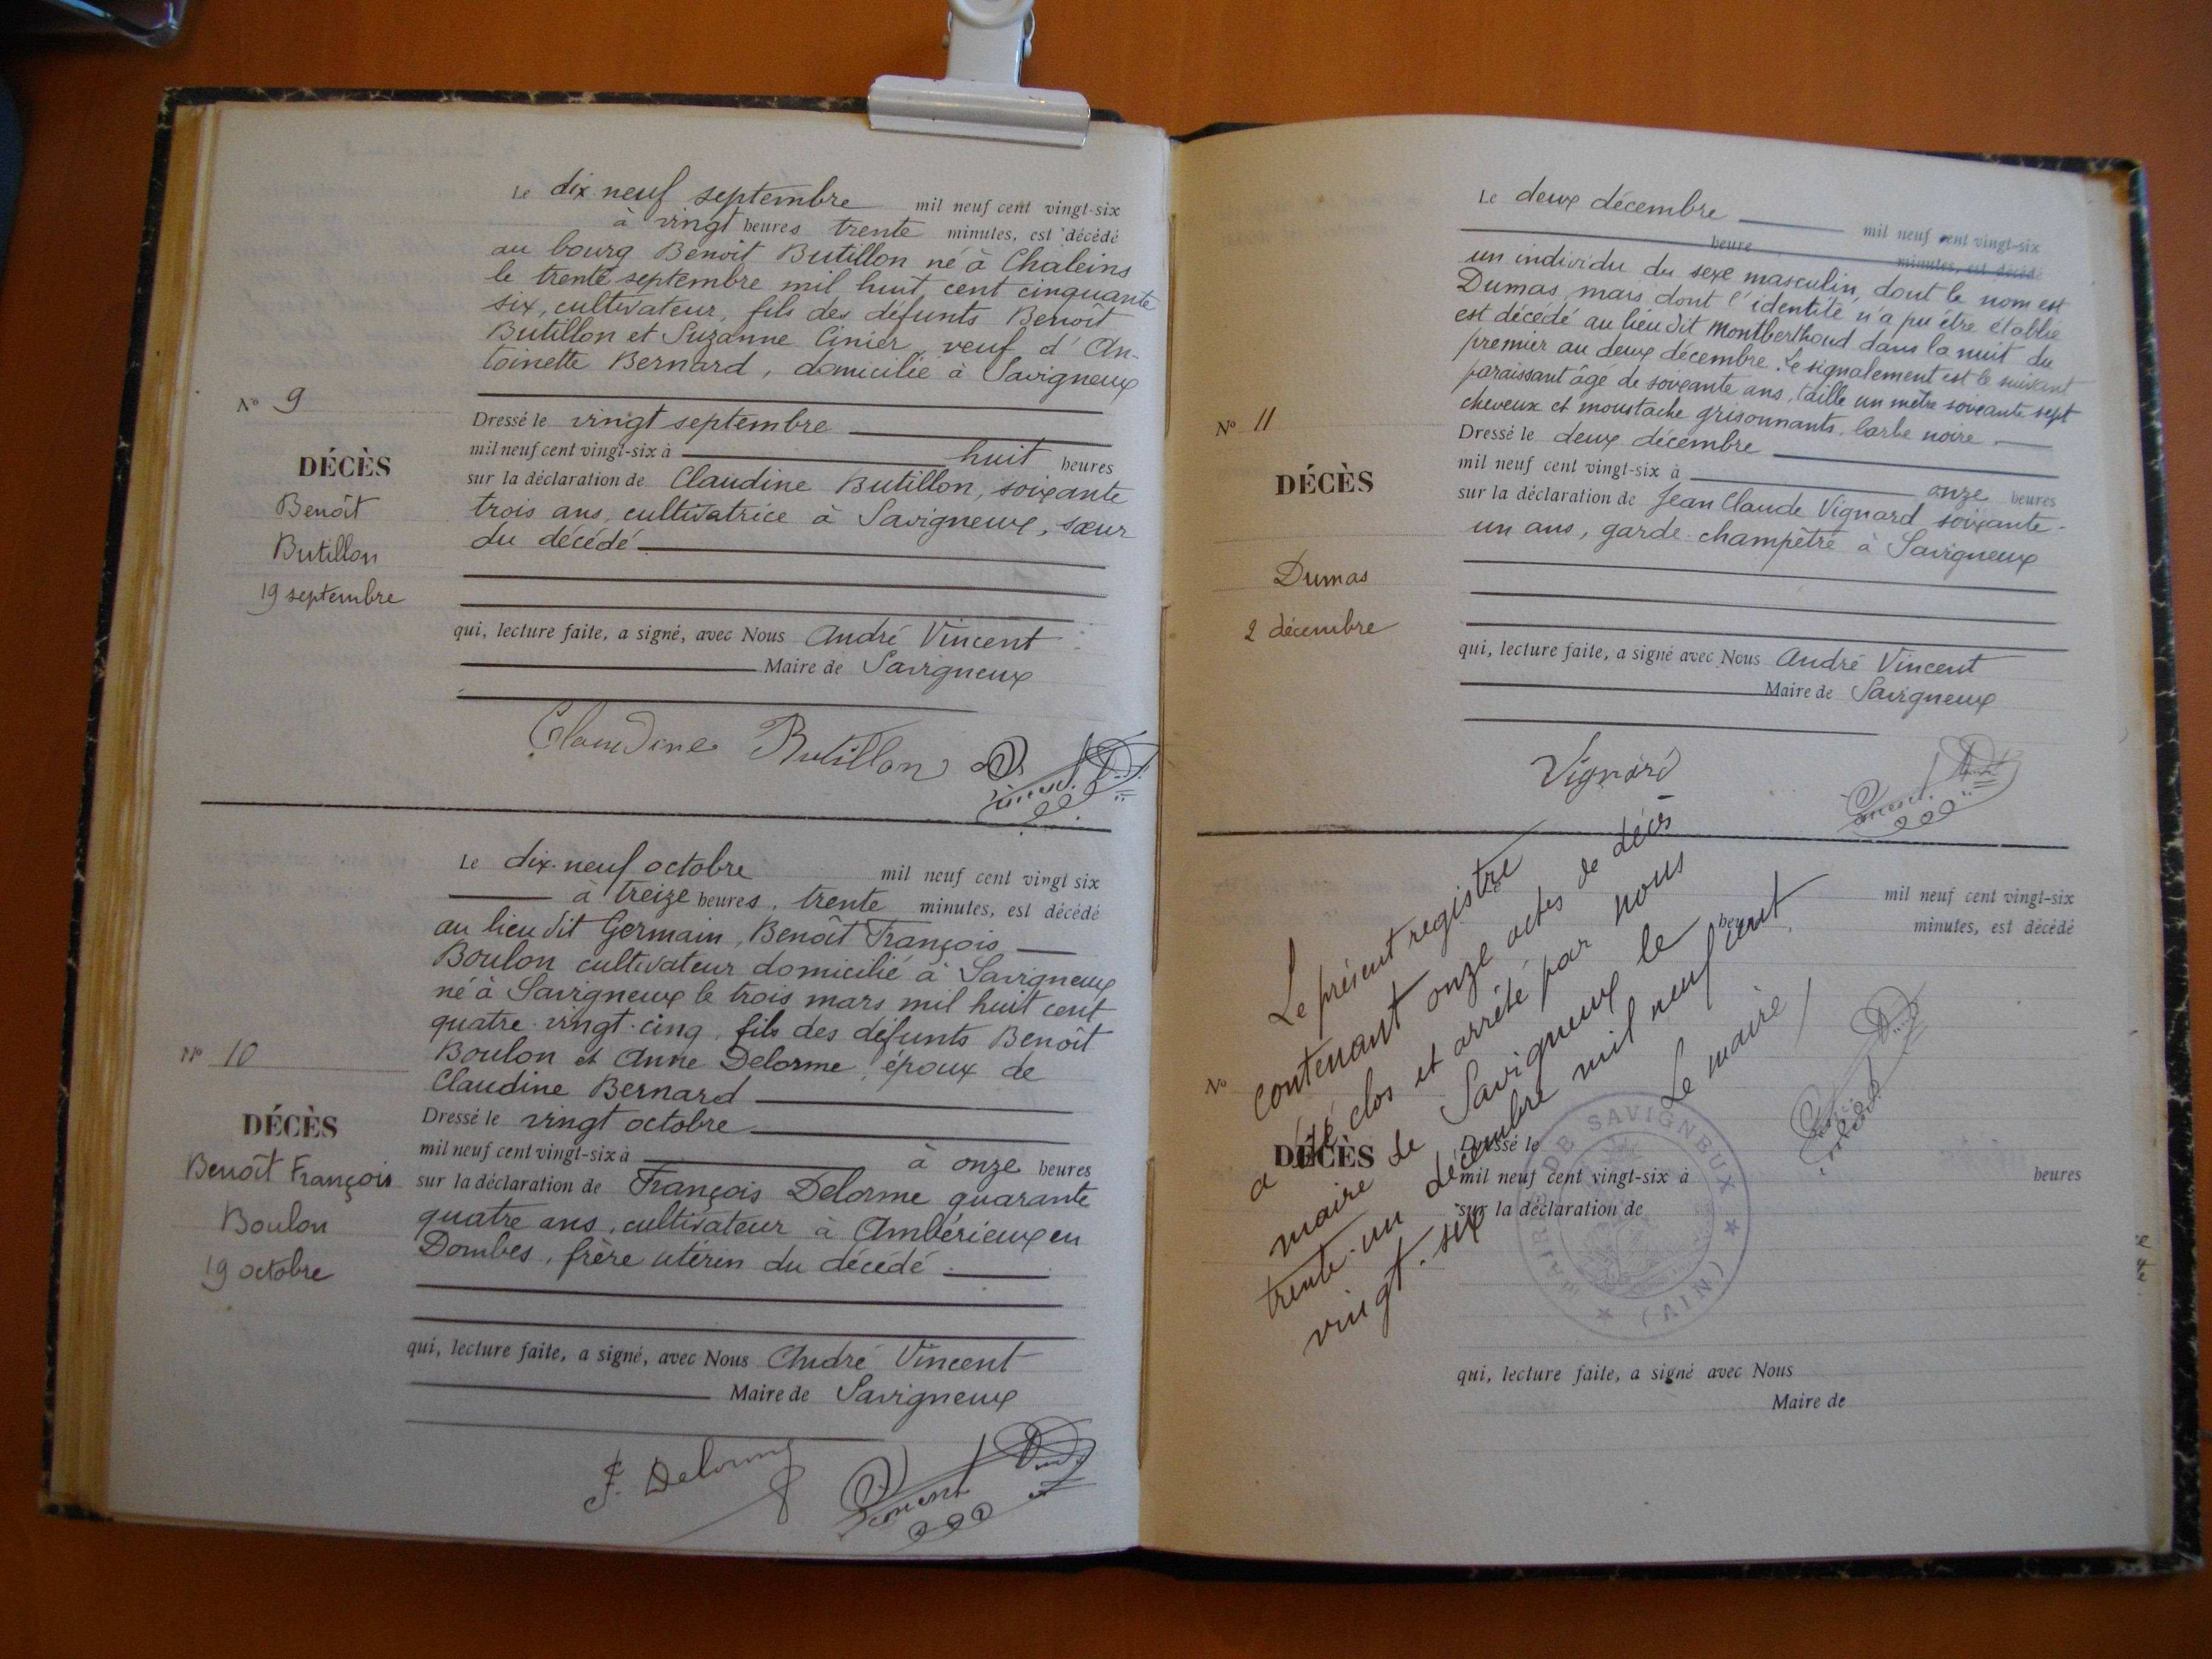 Le dix-neuf septembre mil neuf cent vingt-six
à vingt heures trente minutes, est décédé
au bourg Benoît Butillon né à Chaleins
le trente septembre mil huit cent cinquante
six, cultivateur, fils des défunts Benoît
Butillon et Suzanne Cinier, veuf d'An-
toinette Bernard, domicilié à Savigneux
N° 9
DÉCÈS
Benoît
Butillon
19 septembre
Dressé le vingt septembre
mil neuf cent vingt-six à huit heures
sur la déclaration de Claudine Butillon, soixante
trois ans, cultivatrice à Savigneux, sœur
du décédé
qui, lecture faite, a signé, avec Nous André Vincent
Maire de Savigneux
Claudine Butillon
Vincent
Le dix-neuf octobre mil neuf cent vingt six
à treize heures, trente minutes, est décédé
au lieu dit Germain, Benoît François
Boulon cultivateur domicilié à Savigneux
né à Savigneux le trois mars mil huit cent
quatre-vingt-cinq, fils des défunts Benoît
Boulon et Anne Delorme, époux de
Claudine Bernard
N° 10
DÉCÈS
Benoît François
Boulon
19 octobre
Dressé le vingt octobre
mil neuf cent vingt-six à à onze heures
sur la déclaration de François Delorme quarante
quatre ans, cultivateur à Ambérieux en
Dombes, frère utérin du décédé
qui, lecture faite, a signé, avec Nous André Vincent
Maire de Savigneux
F. Delorme
Vincent
Le deux décembre mil neuf cent vingt-six
heure minutes, est décédé
un individu du sexe masculin, dont le nom est
Dumas, mais dont l'identité n'a pu être établie
est décédé au lieu dit Montberthoud dans la nuit du
premier au deux décembre. Le signalement est le suivant
paraissant âgé de soixante ans, taille un mètre soixante sept
cheveux et moustache grisonnants, barbe noire
N° 11
DÉCÈS
Dumas
2 décembre
Dressé le deux décembre
mil neuf cent vingt-six à onze heures
sur la déclaration de Jean Claude Vignard soixante-
un ans, garde-champêtre à Savigneux
qui, lecture faite, a signé avec Nous André Vincent
Maire de Savigneux
Vignard
Vincent
Le présent registre
contenant onze actes de décès
a été clos et arrêté par nous
maire de Savigneux le
trente-un décembre mil neuf cent
vingt-six
Le maire
Vincent
mil neuf cent vingt-six
heure
minutes, est décédé
N°
DÉCÈS
Dressé le
mil neuf cent vingt-six à heures
sur la déclaration de
MAIRIE DE SAVIGNEUX
(AIN)
qui, lecture faite, a signé avec Nous
Maire de